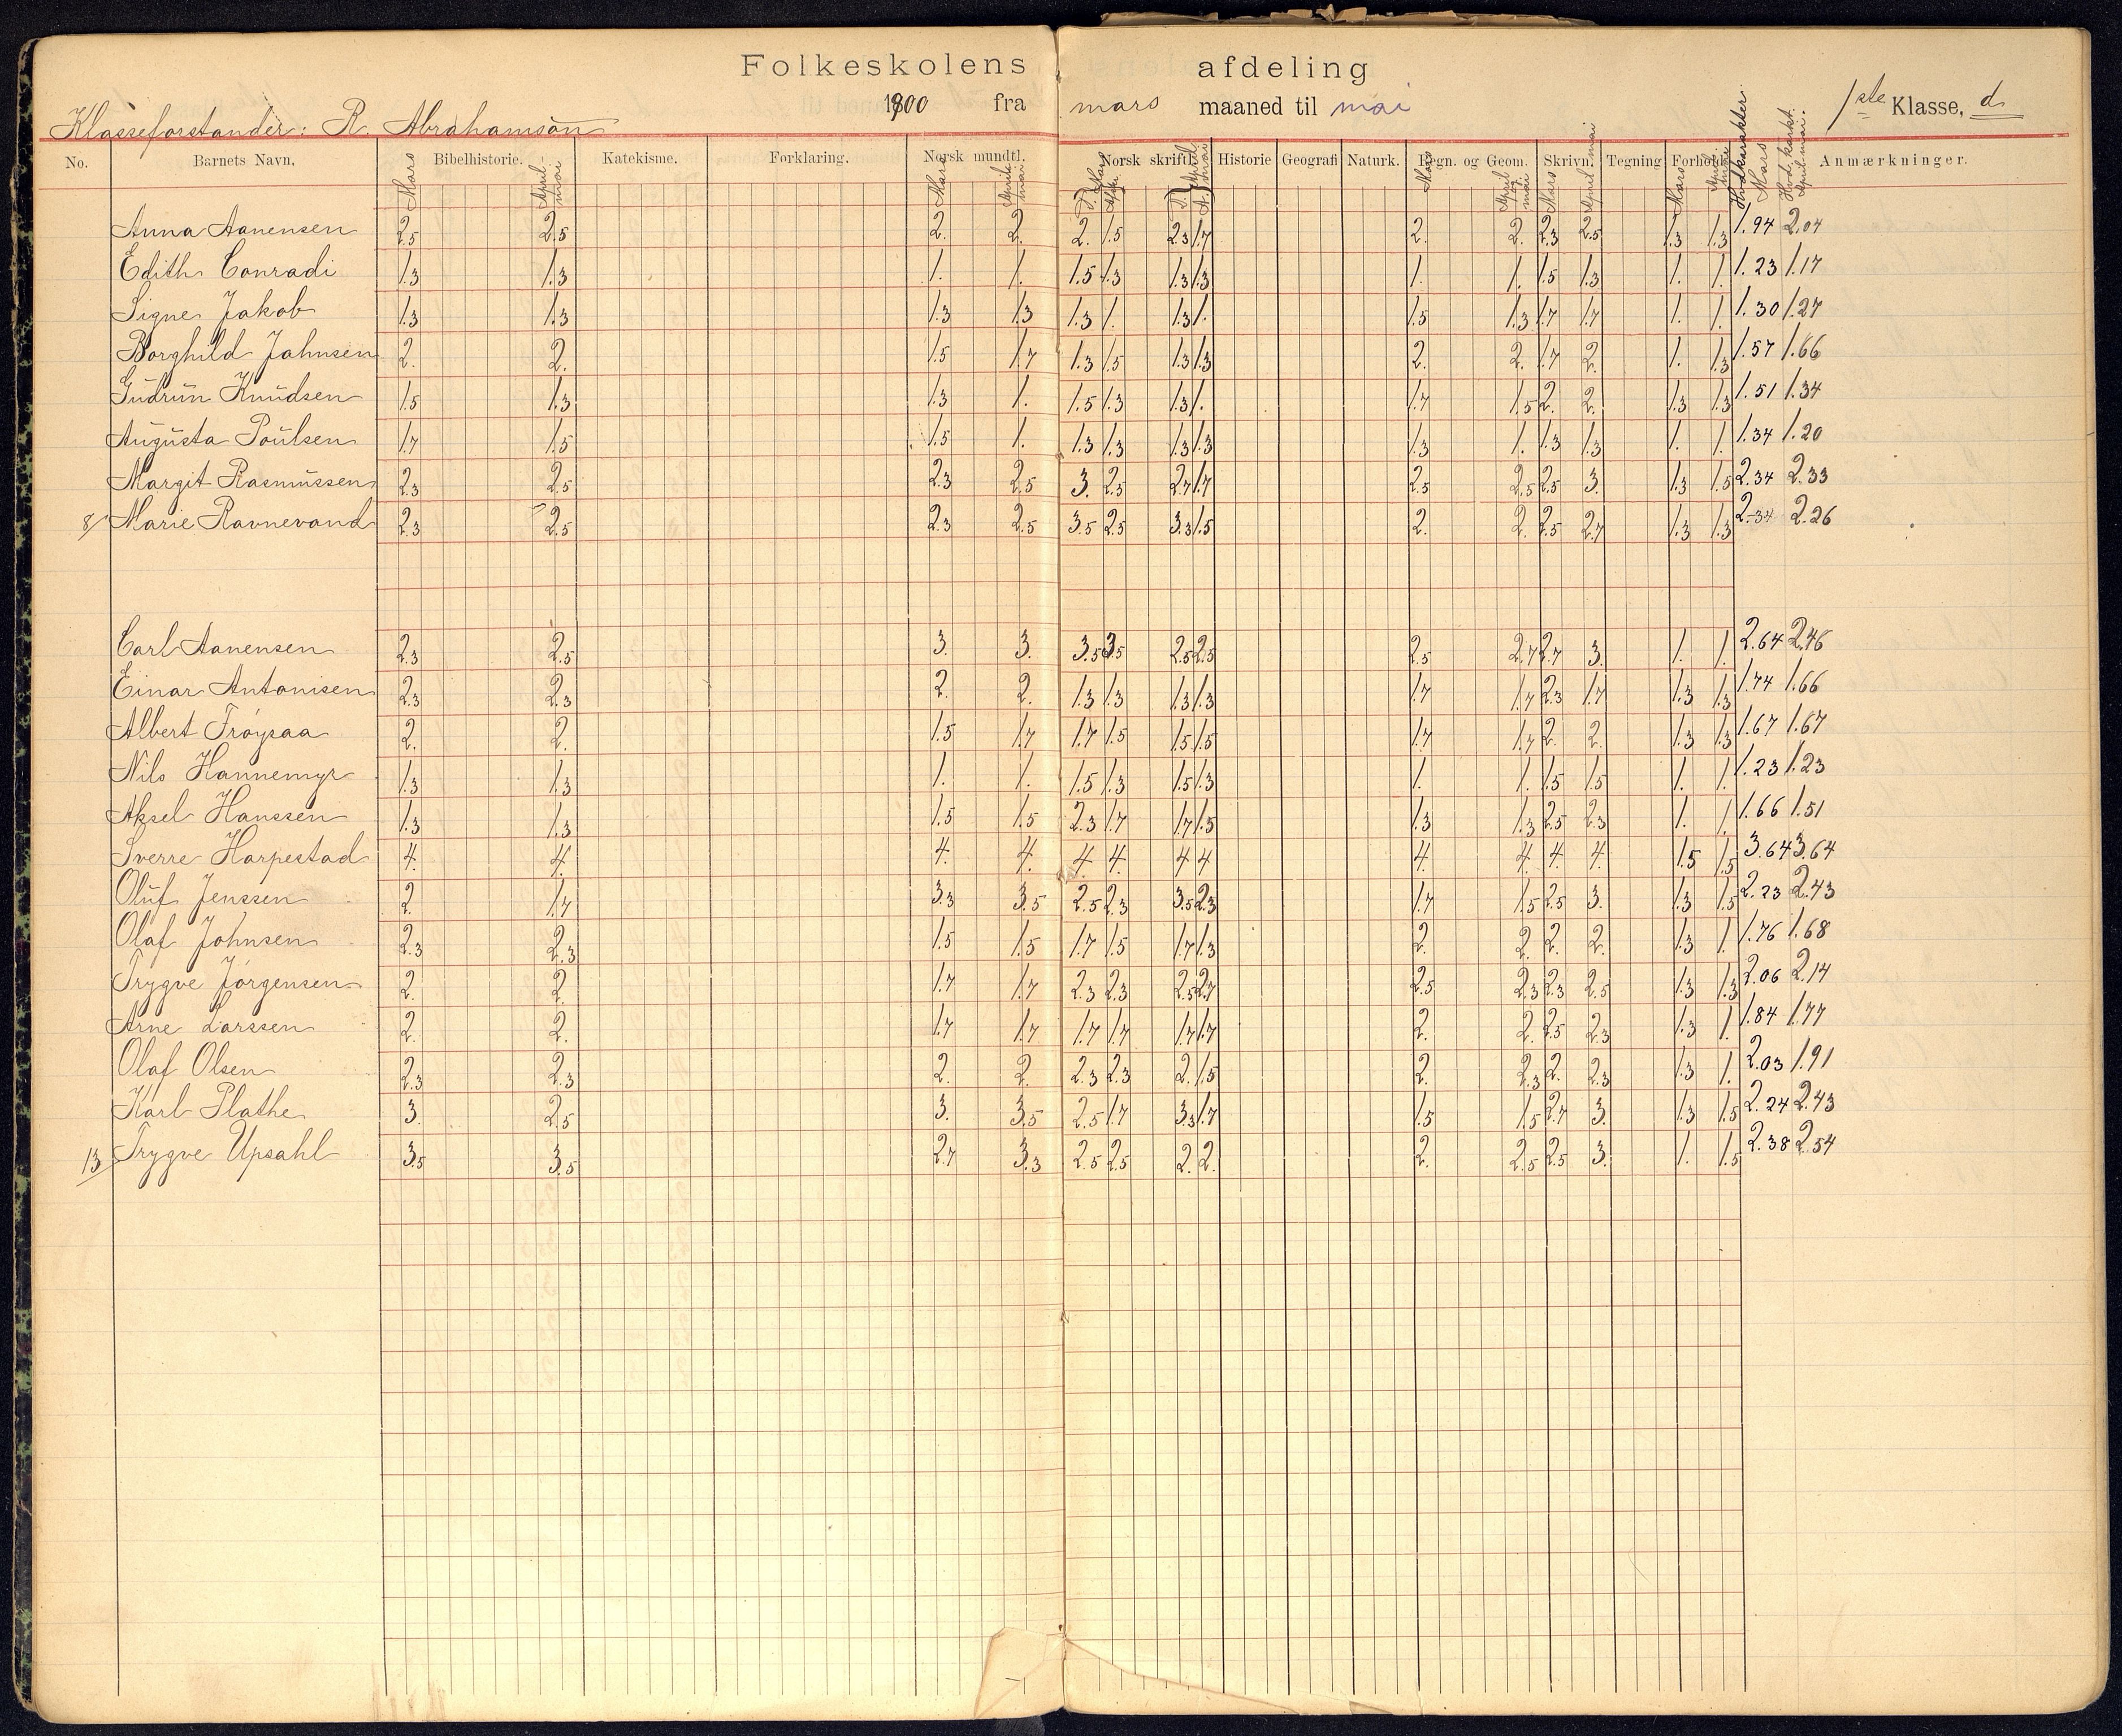 Folkeskolens afdeling
Klasseforstander: R. Abrahamson 1900 fra mars maaned til mai 1ste Klasse, d
No. Barnets Navn. Bibelhistorie. Katekisme. Forklaring. Norsk mundtl. Norsk skriftl. Historie Geografi Naturk. Regn. og Geom. Skrivn. Tegning Forhold. Anmærkninger.
Mars April-mai Mars April mai Mars April mai Mars April og mai Mars April mai Mars April mai Hovedkarakter Mars April mai.
Anna Aanensen 2.5 2.5 2. 2. 2. 1.5 2.3 1.7 2. 2. 2.3 2.5 1.3 1.3 1.94 2.04
Edith Conradi 1.3 1.3 1. 1. 1.5 1.3 1.3 1.3 1. 1. 1.5 1.3 1. 1. 1.23 1.17
Signe Jakob 1.3 1.3 1.3 1.3 1.3 1. 1.3 1. 1.5 1.3 1.7 1.7 1. 1. 1.30 1.27
Borghild Jahnsen 2. 2. 1.5 1.7 1.3 1.5 1.3 1.3 2. 2. 1.7 2. 1. 1.3 1.57 1.66
Gudrun Knudsen 1.5 1.3 1.3 1. 1.5 1.3 1.3 1. 1.7 1.5 2. 2. 1.3 1.3 1.51 1.34
Augusta Poulsen 1.7 1.5 1.5 1. 1.3 1.3 1.3 1.3 1.3 1. 1.3 1.3 1. 1. 1.34 1.20
Margit Rasmussen 2.3 2.5 2.3 2.5 3. 2.5 2.7 1.7 2.5 2.5 2.5 3. 1.3 1.5 2.34 2.33
8 Marie Ravnevand 2.3 2.5 2.3 2.5 3.5 2.5 3.3 1.5 2. 2. 2.5 2.7 1.3 1.3 2.34 2.26
Carl Aanensen 2.3 2.5 3. 3. 3.5 3.5 2.5 2.5 2.5 2.7 2.7 3. 1. 1. 2.64 2.46
Einar Antonisen 2.3 2.3 2. 2. 1.3 1.3 1.3 1.3 1.7 1.7 2.3 1.7 1.3 1.3 1.74 1.66
Albert Frøysaa 2. 2. 1.5 1.7 1.7 1.5 1.5 1.5 1.7 1.7 2. 2. 1.3 1.3 1.67 1.67
Nils Hannemyr 1.3 1.3 1. 1. 1.5 1.3 1.5 1.3 1. 1. 1.5 1.5 1. 1. 1.23 1.23
Aksel Hanssen 1.3 1.3 1.5 1.5 2.3 1.7 1.7 1.5 1.3 1.3 2.5 2.3 1. 1. 1.66 1.51
Sverre Harpestad 4. 4. 4. 4. 4. 4. 4 4 4. 4. 4. 4. 1.5 1.5 3.64 3.64
Oluf Jenssen 2. 1.7 3.3 3.5 2.5 2.3 3.5 2.3 1.7 1.5 2.5 3. 1.3 1.5 2.23 2.43
Olaf Johnsen 2.3 2.3 1.5 1.5 1.7 1.5 1.7 1.3 2. 2. 2. 2. 1.3 1. 1.76 1.68
Trygve Jørgensen 2. 2. 1.7 1.7 2.3 2.3 2.5 2.7 2.5 2.3 2.3 2.5 1.3 1.3 2.06 2.14
Arne Larssen 2. 2. 1.7 1.7 1.7 1.7 1.7 1.7 2. 2. 2.5 2.3 1.3 1. 1.84 1.77
Olaf Olsen 2.3 2.3 2. 2. 2.3 2.3 2. 1.5 2. 2.3 2. 2.3 1.3 1. 2.03 1.91
Karl Plathe 3. 2.5 3. 3.5 2.5 1.7 3.3 1.7 1.5 1.5 2.7 3. 1.3 1.5 2.24 2.43
13 Trygve Upsahl 3.5 3.5 2.7 3.3 2.5 2.5 2. 2. 2. 2.5 2.5 3. 1. 1.5 2.38 2.54